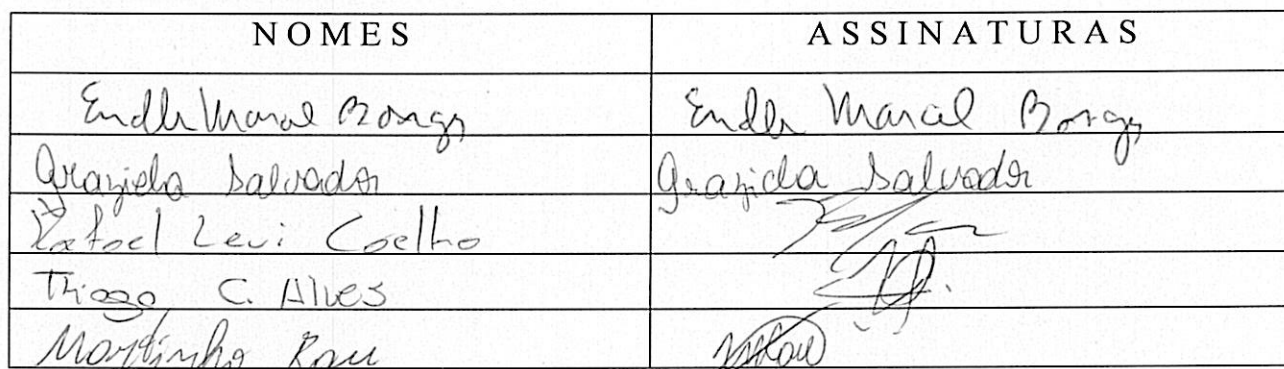 NOMES ASSINATURAS
Endler Marcal Borges Endler Marcal Borges
Graziela Salvador Graziela Salvador
Rafael Levi Coelho
Thiago C. Alves
Martinho Rau